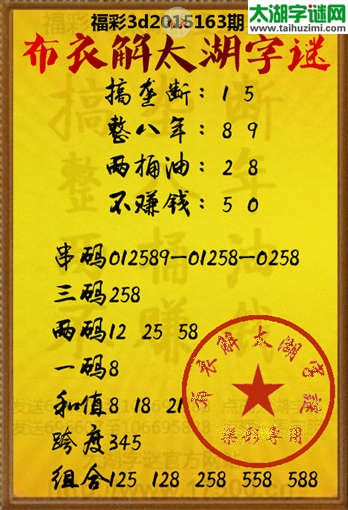 太湖字谜网
www.taihuzimi.com
福彩3d2015163期
布衣解太湖字谜
搞垄断：15
整八年：89
两捅油：28
不赚钱：50
串码012589-01258-0258
三码258
两码12 25 58
一码8
和值8 18 21
跨度345
组合125 128 258 558 588
布衣解太湖字谜